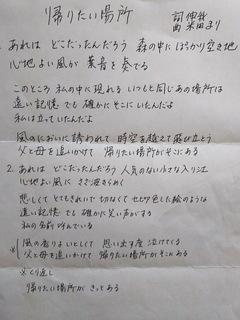 帰りたい場所
1. あれは どこだったんだろう 森の中に ぽっかり空き地
心地よい風が 葉音を奏でる
このところ 私の中に現れる いつも同じあの場所は
遠い記憶 でも 確かにそこにいたんだよ
私は立っていたんだよ
風のにおいに誘われて 時空を越えて 飛び立とう
父と母を追いかけて 帰りたい場所がそこにある
2. あれは どこだったんだろう 人気のない小さな入り江
心地よい風に さざ波きらめく
悲しくて とてもきれいで 切なくて セピア色した絵のような
遠い記憶 でも 確かに 笑い声がする
私の名前 呼んでいる
※ 風の香り よいとして 思い出す度 泣けてくる
父と母を追いかけて 帰りたい場所が そこにある
※ くり返し
帰りたい場所が きっとある